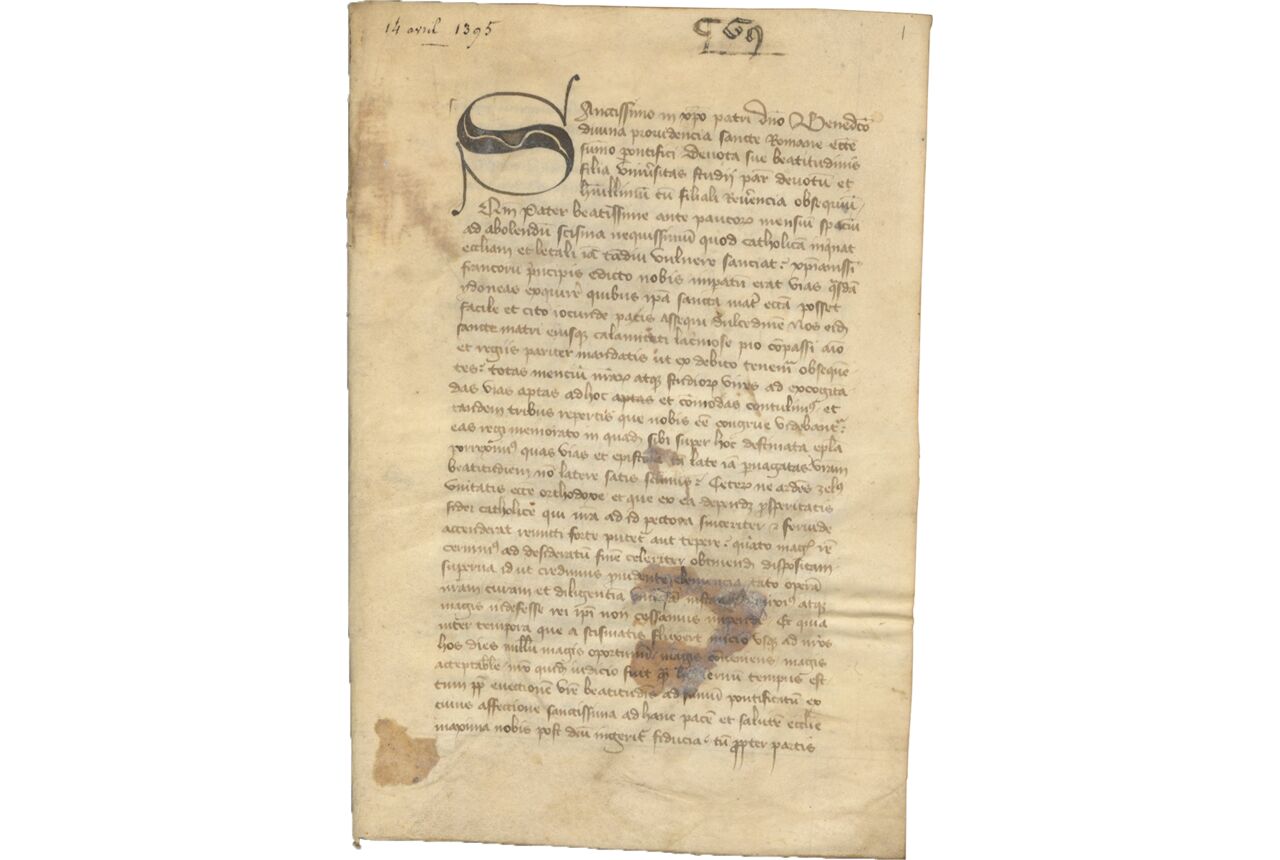 14 avril 1395
1
SAnctissimo in xpo patri dno Benedco
divina providencia sancte Romane ecce
sumo pontifici Devota sue beatitudinis
filia universitas studij par devotu et
hullimu cu filiali Reverencia obsequiu
Pater beatissime ante paucor mensiu spaciu
ad abolendu scisma nequissimu quod catholica inqinat
eccliam et letali ia tadiu vulnere sanciat : xpianissi
francoru pncipis edicto nobis impatu erat vias qsda
ydoneas exquire quibus ipa sancta mat ecca posset
facile et cito iocunde pacis assequi dulcedine Nos eid
sancte matri eiusq calamitati lacimose pio copassi aio
et regiis pariter mandatis ut ex debito tenem obseque
tes : totas menciu nrar atq studior vires ad excogita
das vias aptas adhoc aptas et comodas contulim et
tandem tribus repertis que nobis ee congrue videbant :
eas regi memorato in quad sibi super hoc destinata epla
porreximus quas vias et epistola late ia pvagatas vram
beatitudiem no latere satis scimus : Ceter ne ardes zelus
unitatis ecce orthodoxe et que ex ea depend psperitatis
fidei catholice qui nra ad id pectora sinceriter et fervide
accenderat remitti forte putet aut tepere : quato mag re
cernim ad desideratu fine celeriter obtinend dispositam
superna id ut credimus pvidente clemencia tato opera
nram curam et diligencia atq
magis indefesse rei ipi non cessamus impende Et quia
inter tempora que a scismatis fluxert inicio usq ad nros
hos dies nullu magis oportunu magis conveniens magis
acceptable nro quid iudicio fuit q hodiernu tempus est
tum pp evectione vre beatitudis ad sumu pontificatu ex
cuius affectione sanctissima ad hanc pace et salute ecclie
maxima nobis post deu ingerit fiducia tu ppter partis